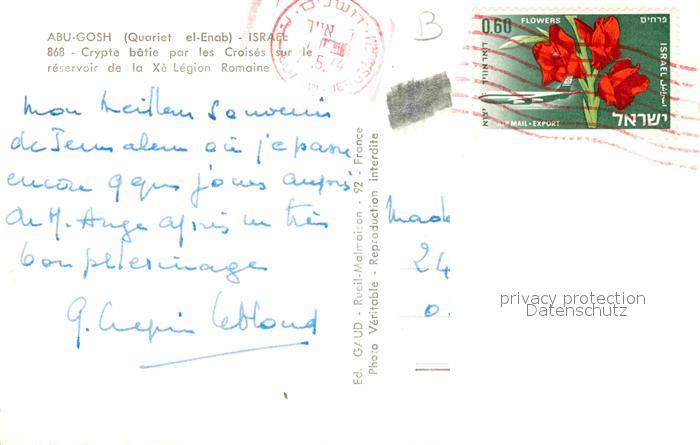 ABU-GOSH (Quariet el-Enab) - ISRAEL
868 - Crypte bâtie par les Croisés sur le
réservoir de la Xè Légion Romaine
Mon meilleur souvenir
de Jerusalem où je passe
encore qques jours auprès
de M. Ange après un très
bon pélerinage
G. Crepin Leblond
Ed. GAUD - Rueil-Malmaison - 92 - France
Photo Véritable - Reproduction interdite
B
0.60
FLOWERS
פרחים
ISRAEL
AIR MAIL·EXPORT
ישראל
ירושלים
JERUSALEM
Mad
24
privacy protection
Datenschutz